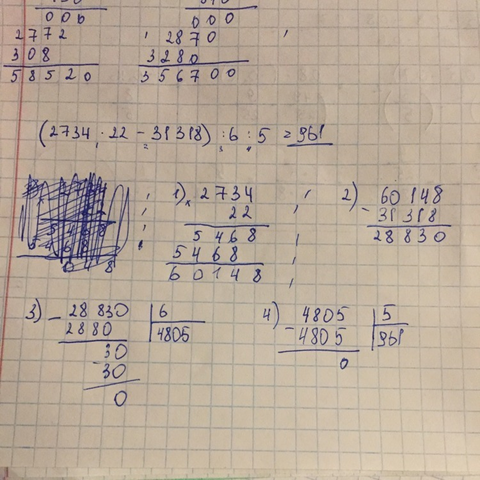 000 000
2772 2870
308 3280
58520 356700
(2734 · 22 - 31318) : 6 : 5 = 961
1) × 2734 2) 60148
22 - 31318
5468 28830
5468
60148
3) - 28830 | 6 4) - 4805 | 5
2880 | 4805 4805 | 961
30 0
- 30
0